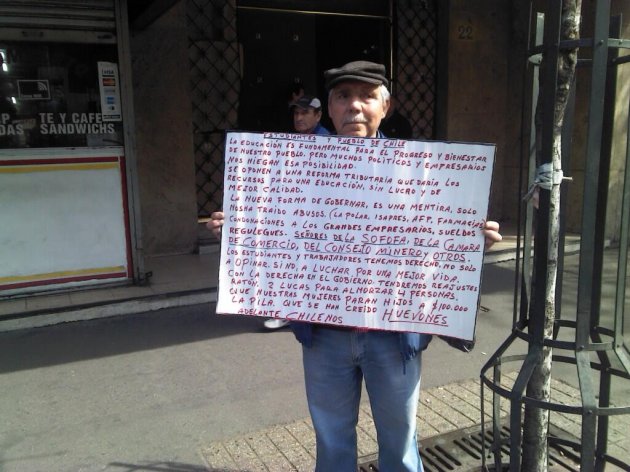 22
VISA
TE Y CAFE
DAS
SANDWICHS
ESTUDIANTES Y PUEBLO DE CHILE
LA EDUCACIÓN ES FUNDAMENTAL PARA EL PROGRESO Y BIENESTAR
DE NUESTRO PUEBLO. PERO MUCHOS POLÍTICOS Y EMPRESARIOS
NOS NIEGAN ESA POSIBILIDAD.
SE OPONEN A UNA REFORMA TRIBUTARIA QUE DARÍA LOS
RECURSOS PARA UNA EDUCACIÓN, SIN LUCRO Y DE
MEJOR CALIDAD.
LA NUEVA FORMA DE GOBERNAR, ES UNA MENTIRA, SOLO
NOS HA TRAIDO ABUSOS. (LA POLAR, ISAPRES, AFP, FARMACIAS)
CONDONACIONES A LOS GRANDES EMPRESARIOS, SUELDOS
REGULEQUES. SEÑORES DE LA SOFOFA, DE LA CAMARA
DE COMERCIO, DEL CONSEJO MINERO Y OTROS.
LOS ESTUDIANTES Y TRABAJADORES TENEMOS DERECHO, NO SOLO
A OPINAR. SI NO, A LUCHAR, POR UNA MEJOR VIDA.
CON LA DERECHA EN EL GOBIERNO TENDREMOS REAJUSTES
RATÓN, 2 LUCAS PARA ALMORZAR 4 PERSONAS,
QUE NUESTRAS MUJERES PARAN HIJOS A $100.000
LA PILA. QUE SE HAN CREIDO HUEVONES
ADELANTE CHILENOS